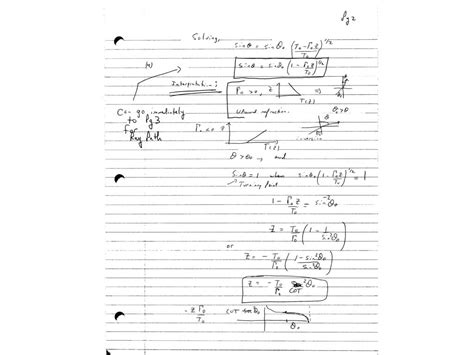 Pg 2
Solving,
sinθ = sinθ₀ (T₀-Γ₀z / T₀)^1/2
sinθ = sinθ₀ (1 - Γ₀z / T₀)^1/2
(a)
Interpretation:
Γ₀ > 0, z
T(z)
θ₀ > θ
Upward refraction.
Can go immediately
to Pg 3
For
Ray Path
Γ₀ < 0 z
T(z)
inversion
θ > θ₀, and
sinθ = 1 when sinθ₀ (1 - Γ₀z / T₀)^1/2 = 1
Turning point
1 - Γ₀z / T₀ = sin⁻²θ₀
z = T₀/Γ₀ (1 - 1/sin²θ₀)
or
z = - T₀/Γ₀ (1 - sin²θ₀ / sin²θ₀)
z = - T₀/Γ₀ COT²θ₀
- z Γ₀/T₀
COT θ₀
θ₀